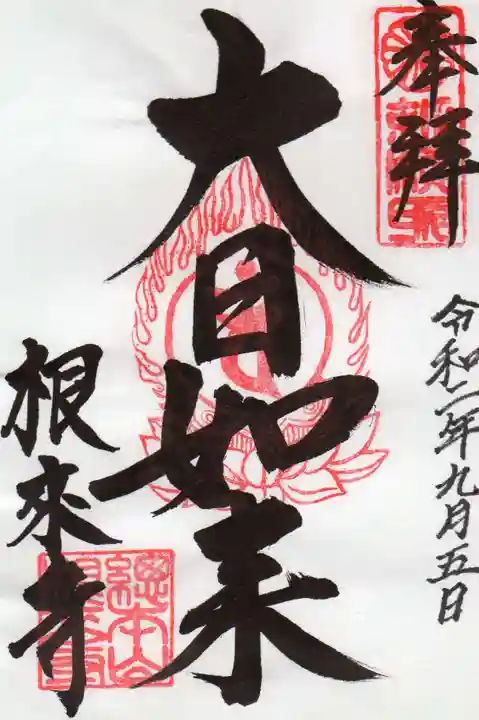 奉拝
令和二年九月五日
大日如来
根來寺
總本山